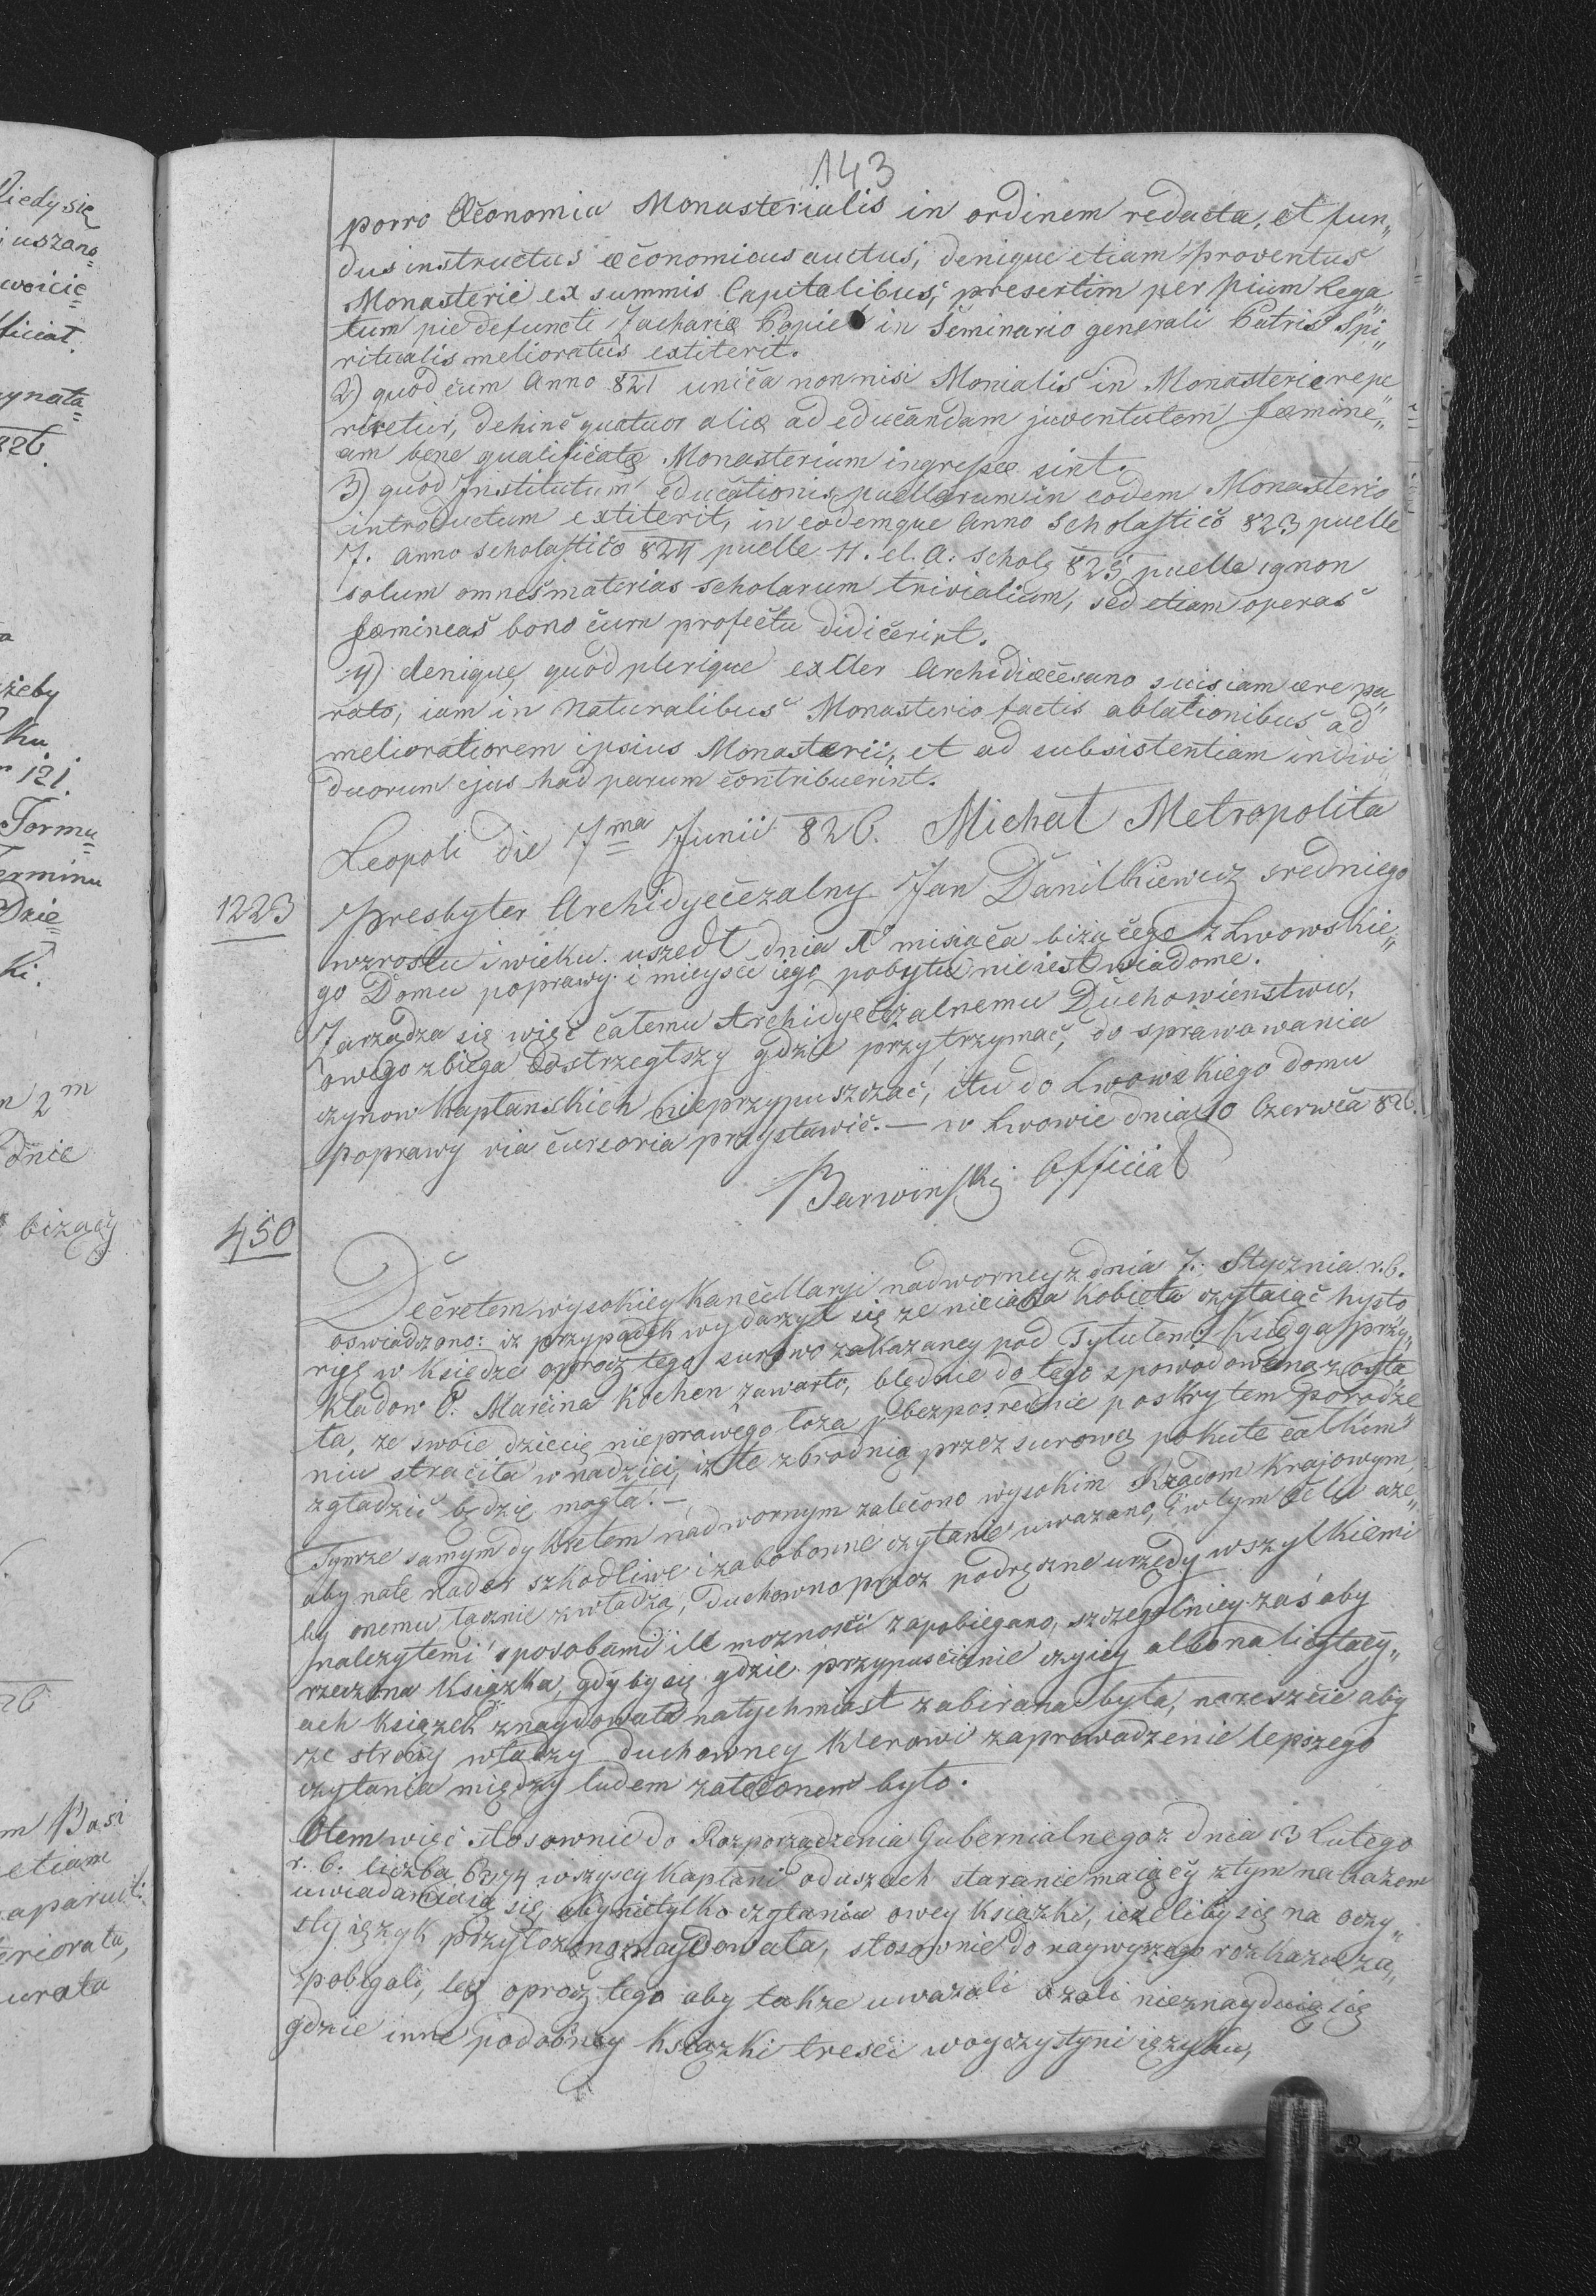 143
porro Œconomia Monasterialis in ordinem redacta, et fun„
dus instructus œconomicus auctus, denique etiam proventus
Monasterii ex summis Capitalibus, presertim per pium Lega„
tum pie defuncti Zachariæ Papie in Seminario generali Patris Spi„
ritualis melioratus extiterit.
2) quod cum Anno 821 unica nonnisi Monialis in Monasterio repe
riretur, dehinc quatuor aliæ ad educandam juventutem fœmine„
am bene qualificatæ Monasterium ingressæ sint.
3) quod Institutum educationis puellarum in eodem Monasterio
introductum extiterit, in eodemque Anno Scholastico 823 puelle
7. Anno Scholastico 824 puelle 11. et A. Schol: 825 puelle 19 non
solum omnes materias scholarum trivialium, sed etiam operas
fœmineas bono cum profectu didicerint.
4) denique, quod plerique ex Cler Archidiœcesano suis iam ære pa„
rato, iam in naturalibus Monasterio factis ablationibus ad
meliorationem ipsius Monasterii, et ad subsistentiam indivi
duorum ejus had parum contribuerint.
Leopoli die 7ma Junii 826. Michał Metropolita
1223
Presbyter Archidyecezalny Jan Daniłkiewicz sredniego
wzrostu i wieku uszedł dnia 1o misiąca biżącego z Lwowskie„
go Domu poprawy i mieysce iego pobytu nie iest wiadome.
Zarządza się więc całemu Archidyecezalnemu Duchowieństwu,
owego zbiega dostrzegłszy gdzie przytrzymać, do sprawowania
czynow kapłanskich nieprzypuszczać, i tu do Lwowskiego domu
poprawy via cursoria przystawić. — w Lwowie dnia 10 Czerwca 826.
Barwinski Official
450
Decretem wysokiey Kancellaryi nadworney z dnia 7. Stycznia r. b.
oswiadczono: iz przypadek wydarzył się ze nieiaka kobieta czytaiąc hysto„
ryę w księdze oprocz tego surowo zakazaney pod Tytułem: Księga przy„
kładow O. Marcina Kochen zawarto, błędnie do tego spowodowana zosta„
ta, ze swoie dziecię nieprawego łoza bezposrednie po skrytem porodze„
niu straciła w nadziei, iz te zbrodnią przez surową pokutę całkiem
zgładzić będzie mogła. —
Tymze samym dykretem nadwornym zalecono wysokim Rządom Krajowym,
aby na te nader szkodliwe i zabobonne czytanie uwazano, i w tym celu aze„
by onemu łacznie z władzą, duchowno przez podręczne urzędy wszytkiemi
nalezytemi sposobami ile moznosci zapobiegano, szczegolniey zaś aby
rzeczona książka, gdyby się gdzie przypuscienie czyiey albo na licytacy„
ach książek znaydowała natychmiast zabirana była, nareszcie aby
ze strony władzy duchowney Klerowi zaprowadzenie lepszego
czytania między ludem zaleconem było.
O tem więc stosownie do Rozporządzenia Gubernialnego z dnia 13 Lutego
r. b. liczba 6974 wszyscy kapłani o duszach staranie maiący z tym nakazem
uwiadamiaią się, aby nietylko czytaniu owey ksiązki, iezeliby się na oczy„
sty ięzyk przytozona znaydowała, stosownie do naywyzszego rozkazu za„
pobiegali, lecz oprocz tego aby takze uwazali azali nieznayduią się
gdzie inne podobney książki tresci w oyczystym ięzyku,